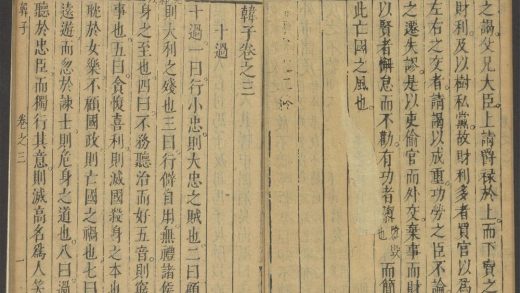 之謁父兄大臣上請爵祿於上而下賣之
財利及以樹私黨故財利多者買官以爲
左右之交者請謁以成重功勞之臣不論
之遷失謬是以吏偷官而外交棄事而財
以賢者懈怠而不勸有功者隳而簡
此亡國之風也
韓子卷之三
十過
十過一曰行小忠則大忠之賊也二曰顧
則大利之殘也三曰行僻自用無禮諸侯
身之至也四曰不務聽治而好五音則窮
事也五曰貪愎喜利則滅國殺身之本也
耽於女樂不顧國政則亡國之禍也七曰
遠遊而忽於諫士則危身之道也八曰過
聽於忠臣而獨行其意則滅高名爲人笑
韓子 卷之三 一